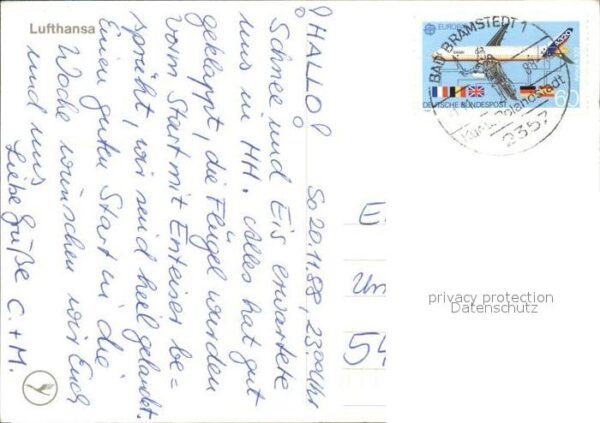 Lufthansa
HALLO! So 20.11.88, 23.00 Uhr
Schnee und Eis erwartete
uns in HH. Alles hat gut
geklappt, die Flügel wurden
vorm Start mit Enteiser be=
sprüht, wir sind heil gelandet.
Einen guten Start in die
Woche wünschen wir Euch
und uns
Liebe Grüße C. + M.
EUROPA
A320
DEUTSCHE BUNDESPOST
60
BAD BRAMSTEDT 1
2357
privacy protection
Datenschutz